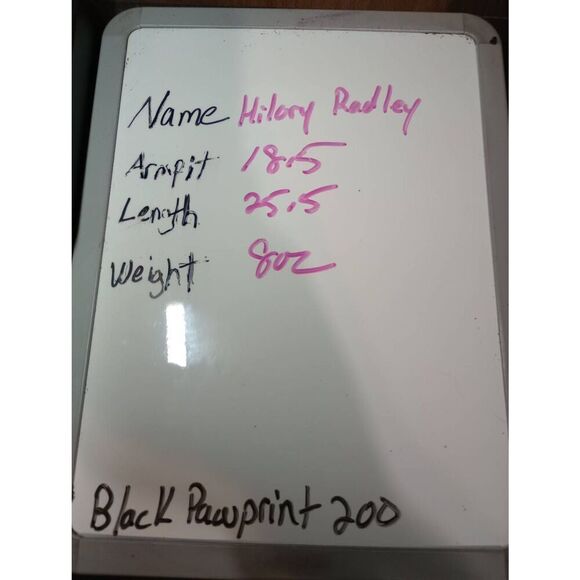 Name Hilary Radley
Armpit 18.5
Length 25.5
Weight 8oz
Black Pawprint 200